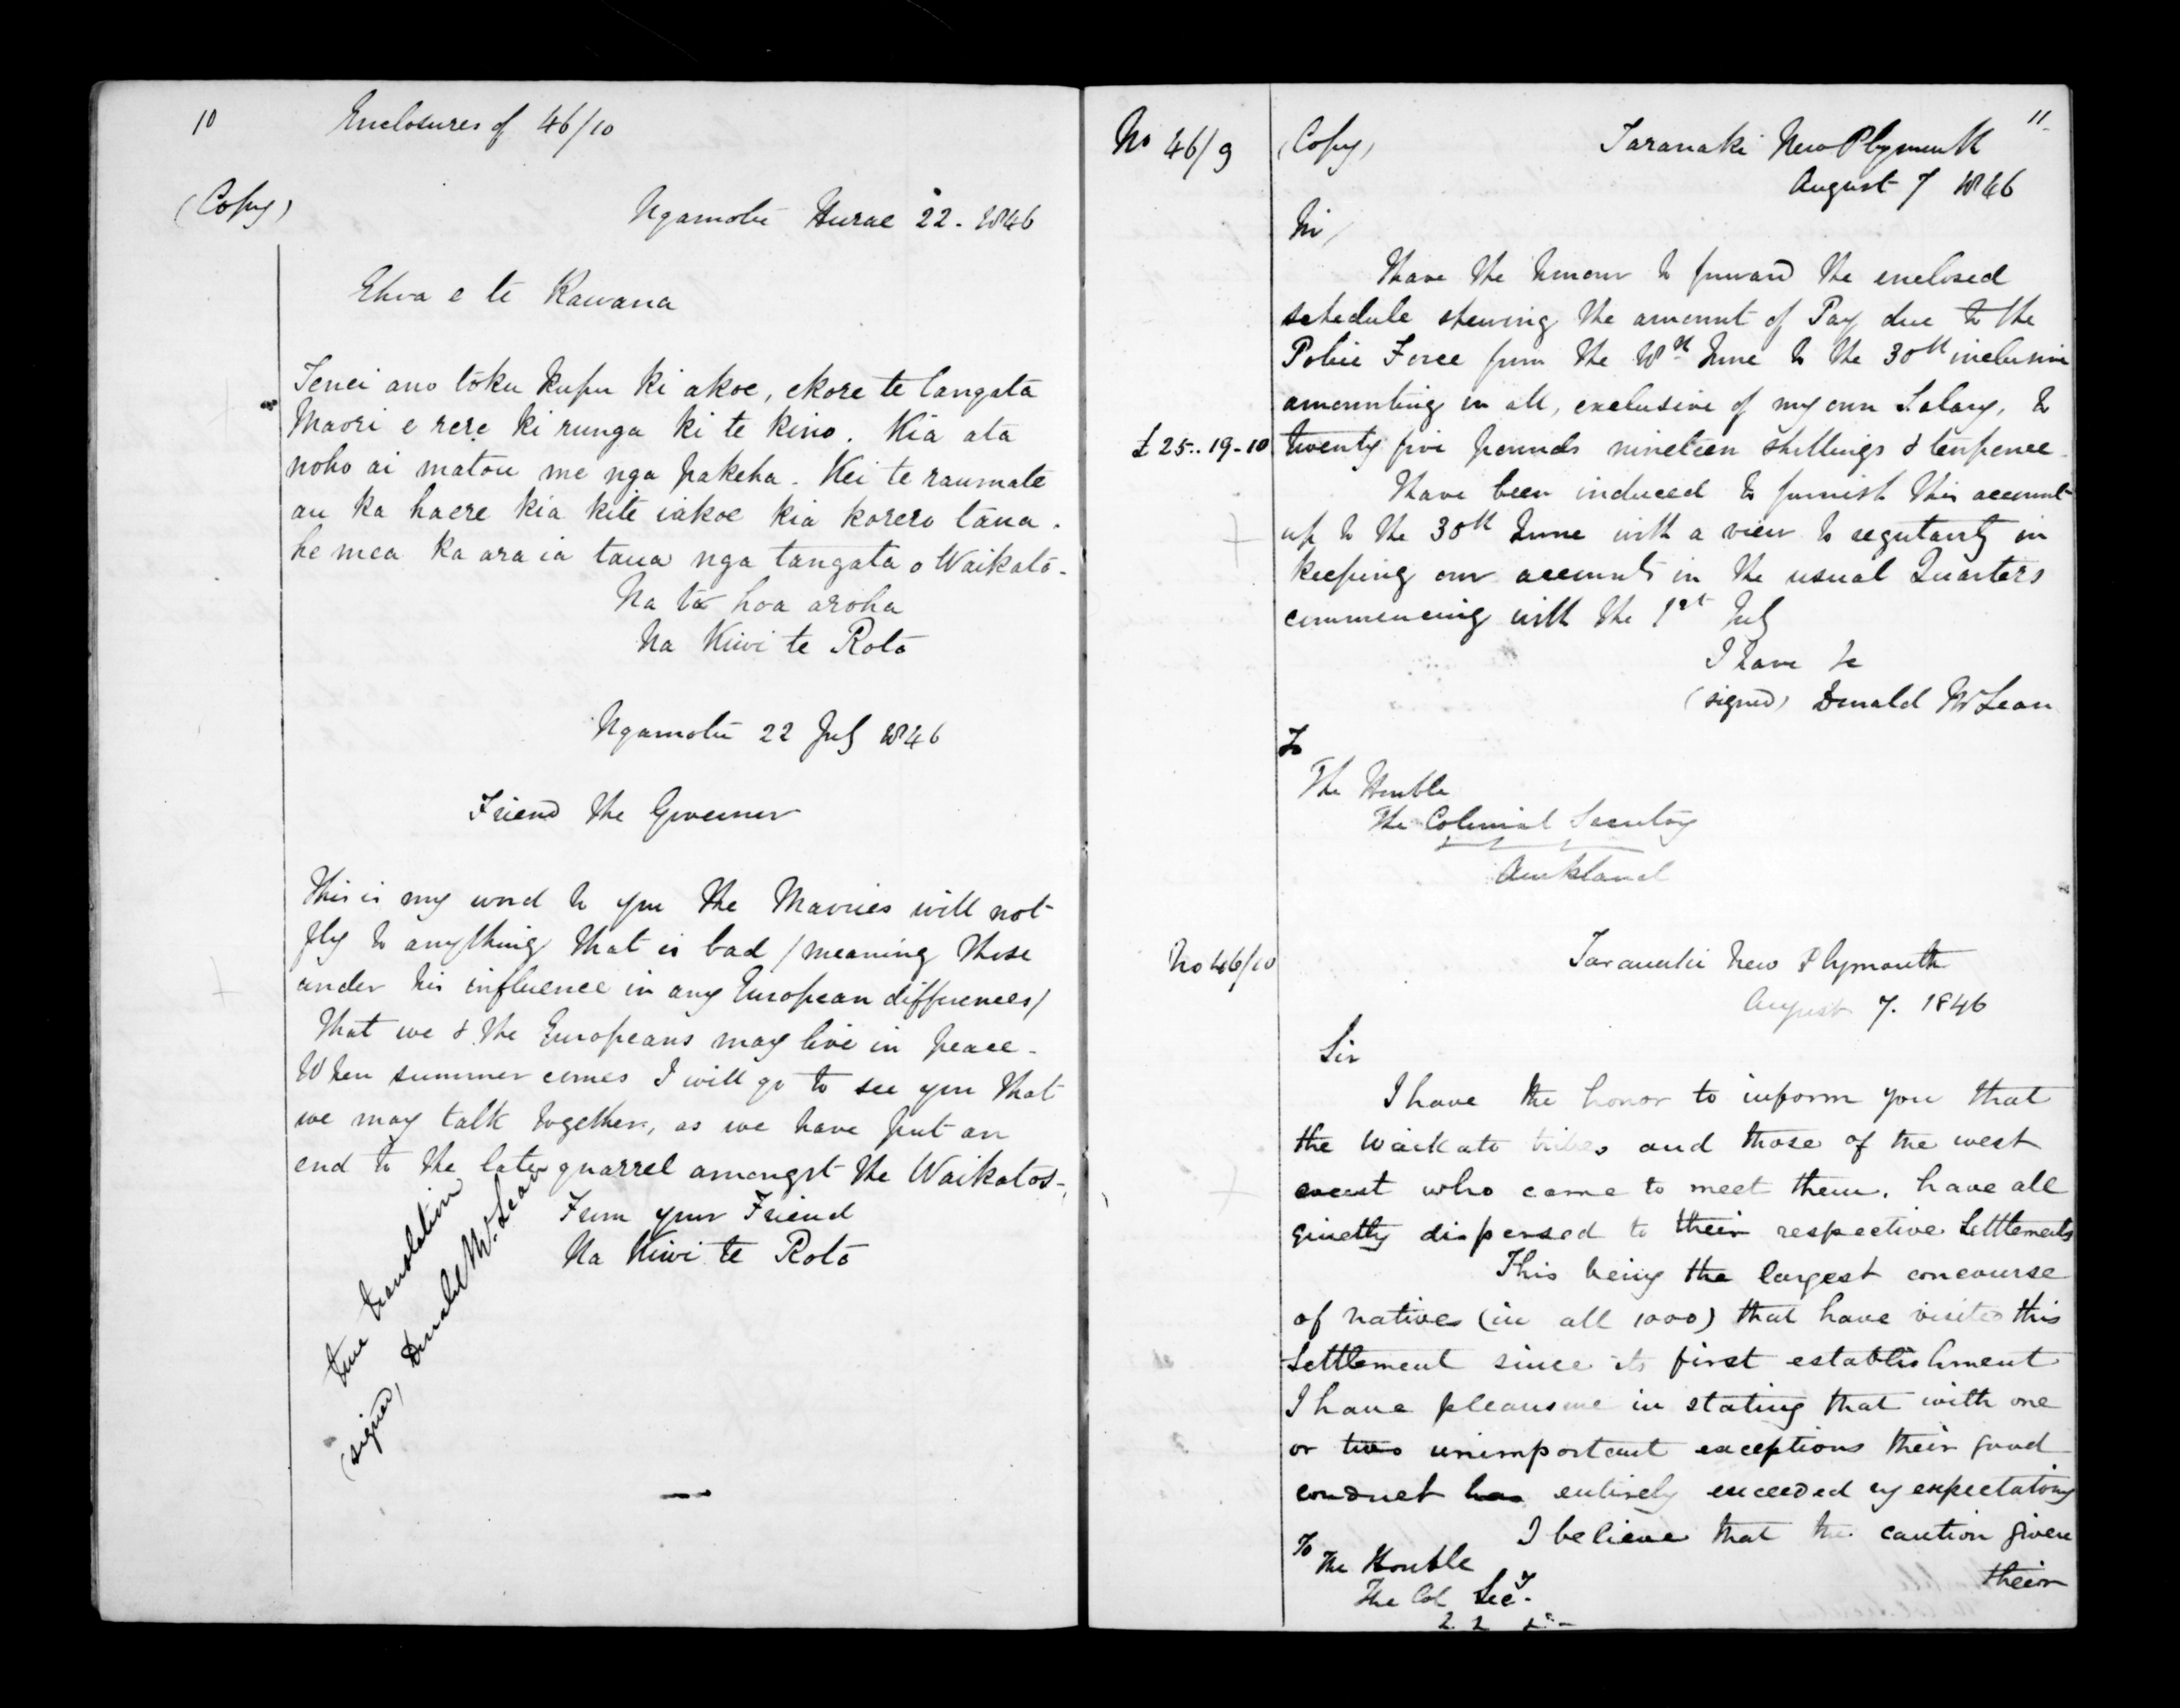 10 Enclosures of 46/10
(Copy) Ngamotu Hurae 22 - 1846
Ehoa e te Kawana
Tenei ano toku kupu ki akoe, ekore te tangata
Maori e rere ki runga ki te kino. Kia ata
noho ai matou me nga pakeha. Kei te raumate
au ka haere kia kite iakoe kia korero taua.
he mea ka ara ia taua nga tangata o Waikato -
Na to hoa aroha
Na Kiwi te Roto
Ngamotu 22 July 1846
Friend the Governor
This is my word to you the Maories will not
fly to anything that is bad / meaning those
under his influence in any European differences /
that we & the Europeans may live in peace -
When summer comes I will go to see you that
we may talk together, as we have put an
end to the late quarrel amongst the Waikatos -
From your Friend
Na Kiwi te Roto
true translation
(signed) Donald McLean
11
No 46/9 (Copy) Taranaki New Plymouth
August 7 1846
Sir/
I have the honour to forward the enclosed
schedule shewing the amount of Pay due to the
Police Force from the 18th June to the 30th inclusive
amounting in all, exclusive of my own Salary, to
£25..19-10 twenty five pounds nineteen shillings & tenpence
I have been induced to furnish this account
up to the 30th June with a view to regularity in
keeping our accounts in the usual Quarters
commencing with the 1st July
I have &c
(signed) Donald McLean
To
The Honble
The Colonial Secretary
Auckland
No 46/10 Taranaki New Plymouth
August 7. 1846
Sir
I have the honor to inform you that
the Waikato tribes and those of the west
coast who came to meet them, have all
quietly dispersed to their respective Settlements
This being the largest concourse
of natives (in all 1000) that have visited this
Settlement since its first establishment
I have pleasure in stating that with one
or two unimportant exceptions their good
conduct has entirely exceeded my expectations
I believe that the caution given
To
The Honble
The Col Secy.
their